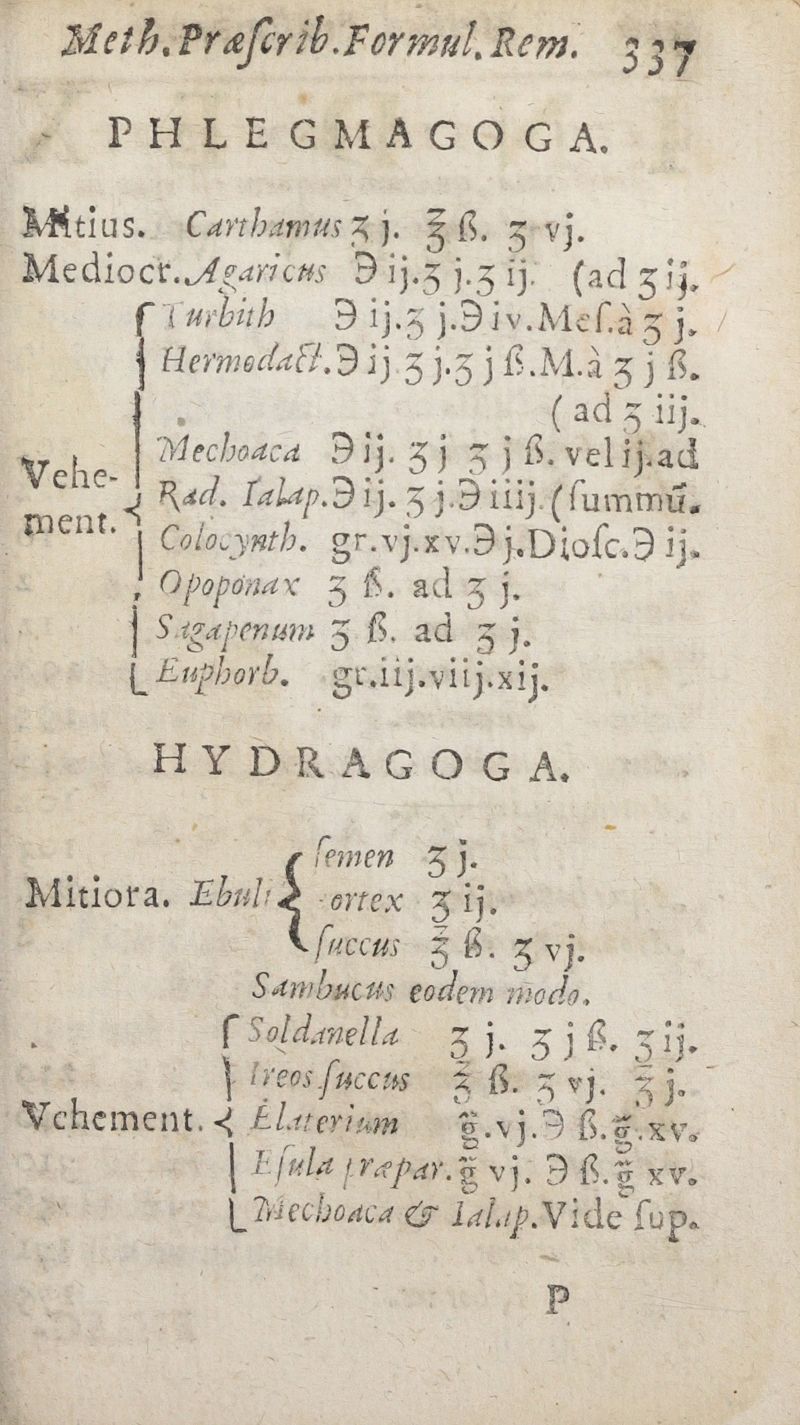 Meth. Præſcrib. Formul. Rem. 337
PHLEGMAGOGA.
Mitius. Carthamus ʒ j. ℥ ß. ʒ vj.
Mediocr. Agaricus ℈ ij. ʒ j. ʒ ij. (ad ʒ ij.
Turbith ℈ ij. ʒ j. ℈ iv. Meſ. à ʒ j.
Hermodact. ℈ ij. ʒ j. ʒ j ß. M. à ʒ j ß.
( ad ʒ iij.
Mechoaca ℈ ij. ʒ j ʒ j ß. vel ij. ad
Vehement. Rad. Ialap. ℈ ij. ʒ j. ℈ iiij. (ſummũ.
Colocynth. gr. vj. xv. ℈ j. Dioſc. ℈ ij.
Opoponax ʒ ß. ad ʒ j.
Sagapenum ʒ ß. ad ʒ j.
Euphorb. gr. iij. viij. xij.
HYDRAGOGA.
ſemen ʒ j.
Mitiora. Ebuli cortex ʒ ij.
ſuccus ℥ ß. ʒ vj.
Sambucus eodem modo.
Soldanella ʒ j. ʒ j ß. ʒ ij.
Ireos ſuccus ℥ ß. ʒ vj. ℥ j.
Vehement. Elaterium g̃. vj. ℈ ß. g̃. xv.
Eſula præpar. g̃ vj. ℈ ß. g̃ xv.
Mechoaca & Ialap. Vide ſup.
P